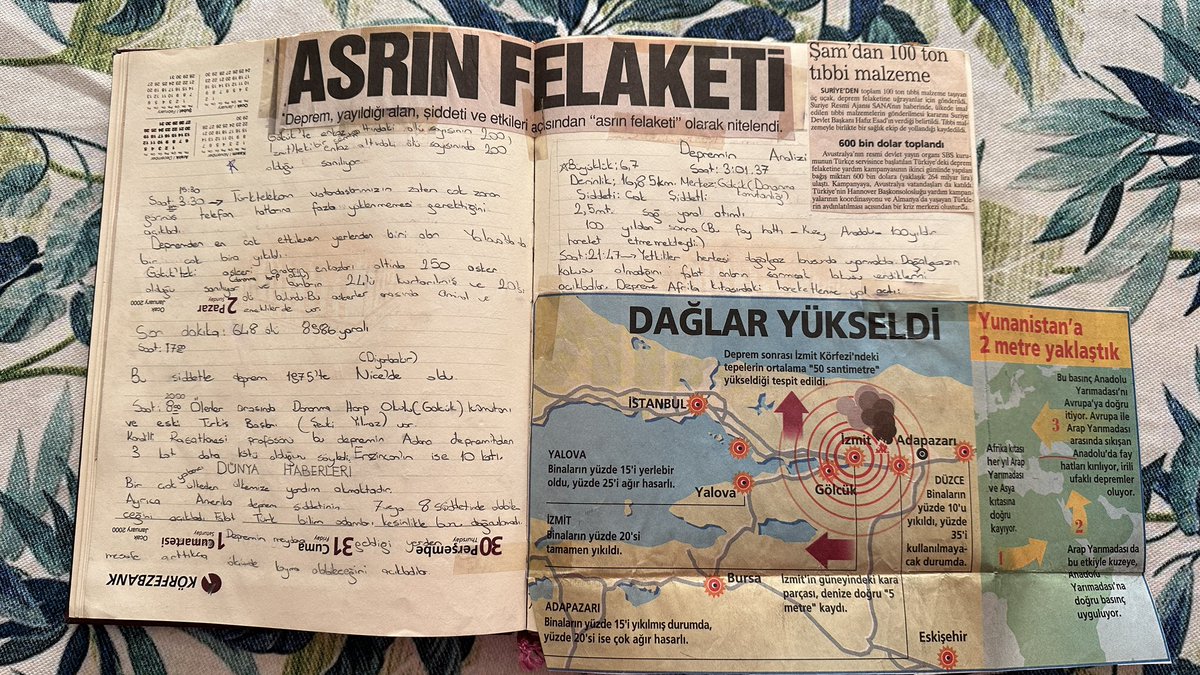 ASRIN FELAKETİ
"Deprem, yayıldığı alan, şiddeti ve etkileri açısından "asrın felaketi" olarak nitelendi.
Şam'dan 100 ton
tıbbi malzeme
SURİYE'DEN toplam 100 ton tıbbi malzeme taşıyan
üç uçak, deprem felaketine uğrayanlar için gönderildi.
Suriye Resmi Ajansı SANA'nın haberinde, ülkede imal
edilen tıbbi malzemelerin gönderilmesi kararını Suriye
Devlet Başkanı Hafız Esad'ın verdiği belirtildi. Tıbbi mal-
zemeyle birlikte bir sağlık ekip de yollandığı kaydedildi.
600 bin dolar toplandı
Avustralya'nın resmi devlet yayın organı SBS kuru-
munun Türkçe servisince başlatılan Türkiye'deki deprem
felaketine yardım kampanyasının ikinci gününde yapılan
bağış miktarı 600 bin Dolara (yaklaşık 264 milyar lira)
ulaştı. Kampanyaya, Avustralya vatandaşları da katıldı.
Türkiye'nin Hannover Başkonsolosluğu yardım kampan-
yalarının koordinasyonu ve Almanya'da yaşayan Türkle-
rin aydınlatılması açısından bir kriz merkezi oluşturdu.
200
olduğu sanılıyor.
19:30
Saat: 3:30 → vatandaşlarımızın zaten çok zarar
görmüş telefon hatlarına fazla yüklenmemesi gerektiğini
açıkladı.
Depremden en çok etkilenen yerlerden birini olan Yalova'da da
bir çok bina yıkıldı.
Gölcük'teki askeri enkazları altında 250 asker
olduğu sanılıyor ve bunların kurtarılmış ve
ölü bulundu. Bu askerler arasında Amiral ve
emekliler de var.
2 Pazar
Sunday
Ocak
January 2000
Son dakika: 648 ölü 8986 yaralı
Saat:
(Diyarbakır)
Bu şiddetle deprem 1875'te Nice'de oldu.
20:00
Saat: 8:00 Ölenler arasında Donanma Harp Okulu (Gölcük) komutanı
ve eski var.
Kandilli Rasathanesi profesörü bu depremin Adana depreminden
3 kat daha kötü olduğunu söyledi. Erzincan'ın ise 10 katı.
DÜNYA HABERLERİ
Bir çok ülkeden ülkemize yardım akmaktadır.
Ayrıca Amerika deprem şiddetinin 7 veya 8 şiddetinde olabile-
ceğini açıkladı. Fakat Türk bilim adamları kesinlikle bunu doğrulamadı.
Depremin meydana geldiği yerden
mesafe arttıkça olabileceğini açıkladılar.
30 Perşembe
Thursday
31 Cuma
Friday
1 Cumartesi
Saturday
Ocak
January 2000
KÖRFEZBANK
Depremin Analizi
Büyüklük: 6,7 Saat: 3:01.37
Derinlik: Merkez: Gölcük (Donanma
Komutanlığı)
Şiddeti: Çok Şiddetli
2,5mt. sağ yanal atımlı
100 yıldan sonra (Bu fay hattı - Kuzey Anadolu - 100 yıldır
hareket etmemekteydi.)
Saat: 21:47 → Yetkililer herkesi doğalgaz konusunda uyarmakta. Doğalgazın
kokusu olmadığını fakat onların sarımsak kokusu verdiklerini
açıkladılar. Depreme Afrika kıtasındaki hareketlenme yol açtı.
DAĞLAR YÜKSELDİ
Deprem sonrası İzmit Körfezi'ndeki
tepelerin ortalama "50 santimetre"
yükseldiği tespit edildi.
İSTANBUL
İzmit
Adapazarı
Gölcük
Yalova
YALOVA
Binaların yüzde 15'i yerlebir
oldu, yüzde 25'i ağır hasarlı.
İZMİT
Binaların yüzde 20'si
tamamen yıkıldı.
DÜZCE
Binaların
yüzde 10'u
yıkıldı, yüzde
35'i
kullanılmaya-
cak durumda.
Bursa
İzmit'in güneyindeki kara
parçası, denize doğru "5
metre" kaydı.
ADAPAZARI
Binaların yüzde 15'i yıkılmış durumda,
yüzde 20'si ise çok ağır hasarlı.
Eskişehir
Yunanistan'a
2 metre yaklaştık
Bu basınç Anadolu
Yarımadası'nı
Avrupa'ya doğru
itiyor. Avrupa ile
Arap Yarımadası
arasında sıkışan
Anadolu'da fay
hatları kırılıyor, irili
ufaklı depremler
oluyor.
3
Afrika kıtası
her yıl Arap
Yarımadası
ve Asya
kıtasına
doğru
kayıyor.
2
1
Arap Yarımadası da
bu etkiyle kuzeye,
Anadolu
Yarımadası'na
doğru basınç
uyguluyor.